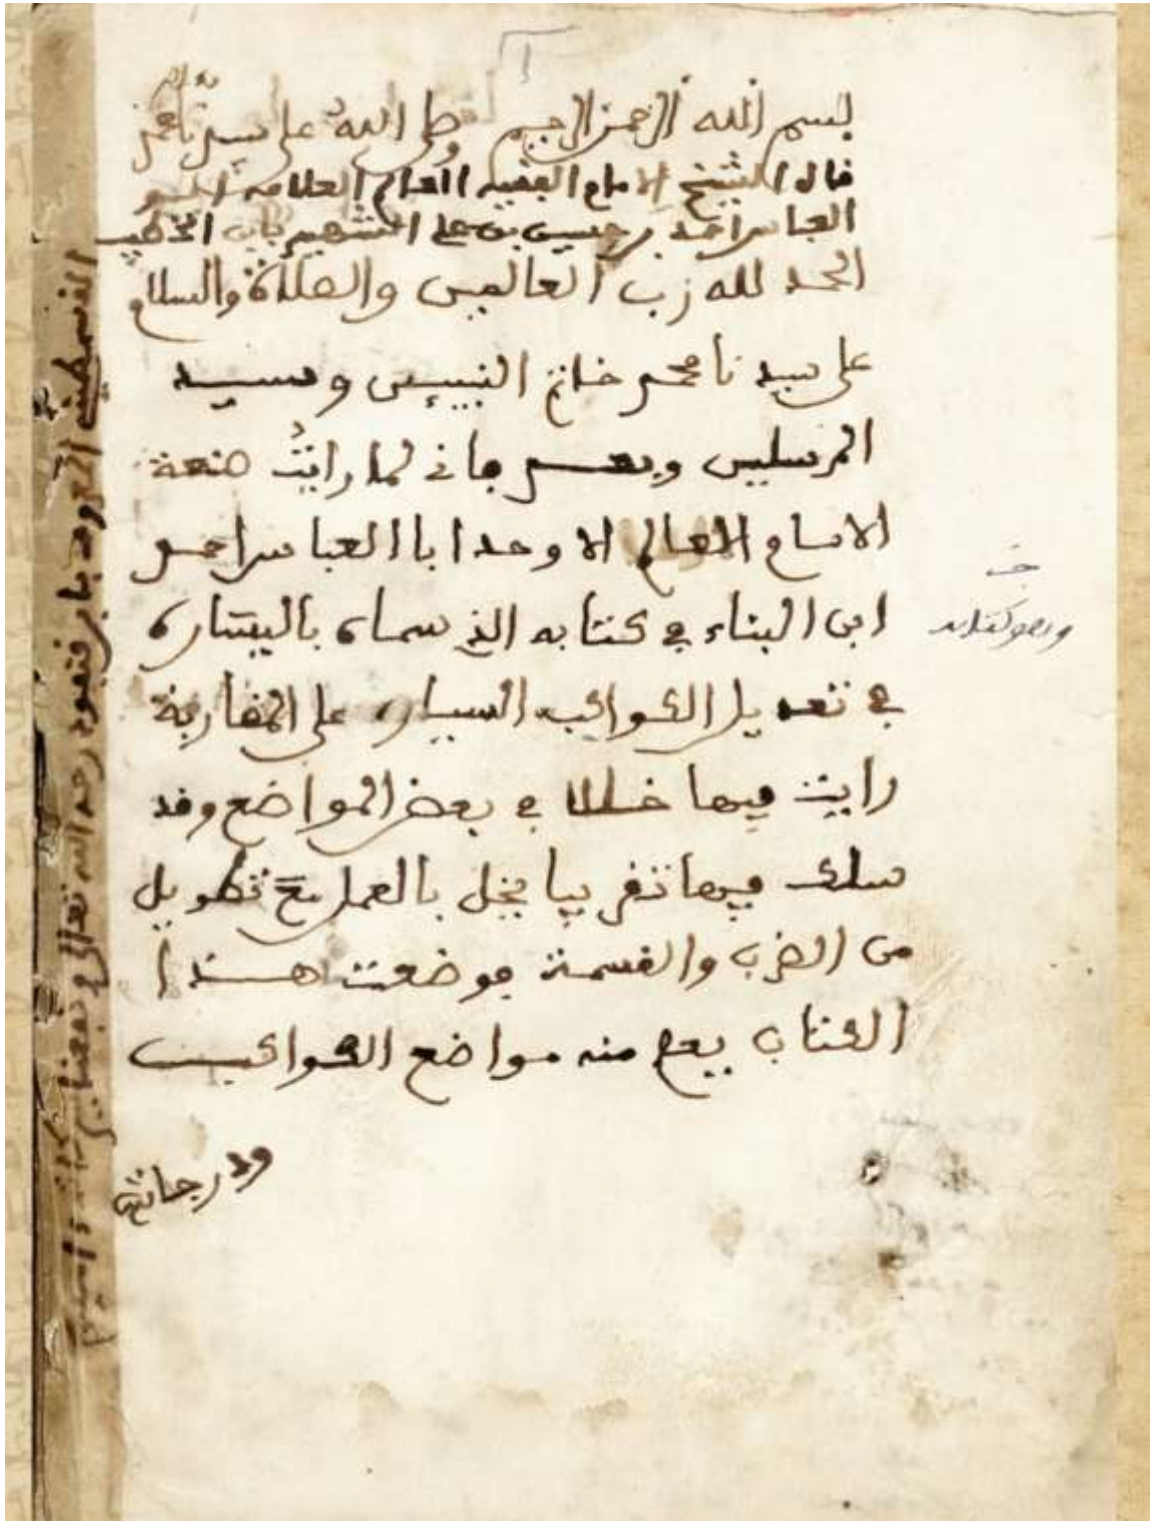 بسم الله الرحمن الرحيم وصلى الله على سيدنا محمد
قال الشيخ الامام الفقيه العالم العلامه ابو
العباس احمد بن حسين بن علي الشهير بابن الخطيب
الحمد لله رب العالمين والصلاة والسلام
على سيدنا محمد خاتم النبيين وسيد
المرسلين وبعد فاني لما رايتُ صنعة
الامام العالم الاوحد ابا العباس احمد
ابن البناء في كتابه الذي سماه باليسارة
في تعديل الكواكب السيارة على المغاربة
رايت فيها خللا في بعض المواضع وقد
سلك فيها تقريبا يخل بالعمل مع تطويل
من الضرب والقسمة فوضعت هذا
الكتاب يعلم منه مواضع الكواكب
ودرجاتها
القسنطيني المعروف بابن قنفود رحمه الله تعالى ونفعنا به